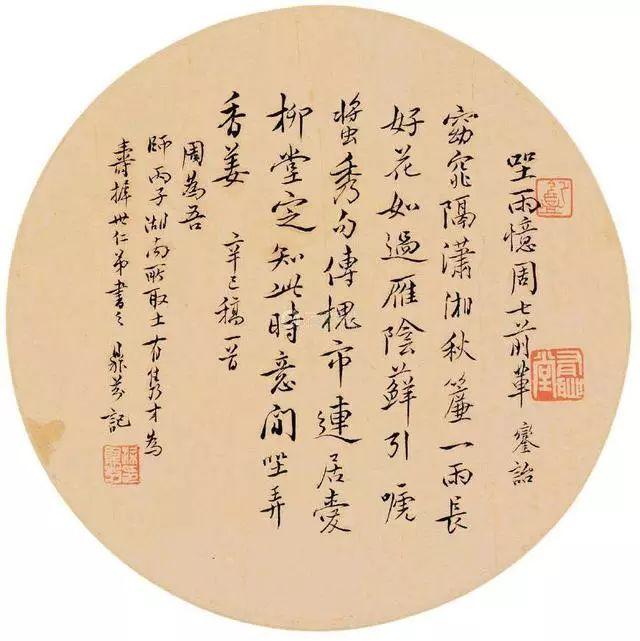 坐雨憶周七前輩 鑾詒
窈窕隔瀟湘秋簾一雨長
好花如過雁陰蘚引嗁
螿秀句傳槐市連居愛
柳堂定知此時意閒坐弄
香姜 辛巳稿一首
周為吾
師丙子湖南所取士有雋才為
壽樨世仁弟書之 鼎芬記